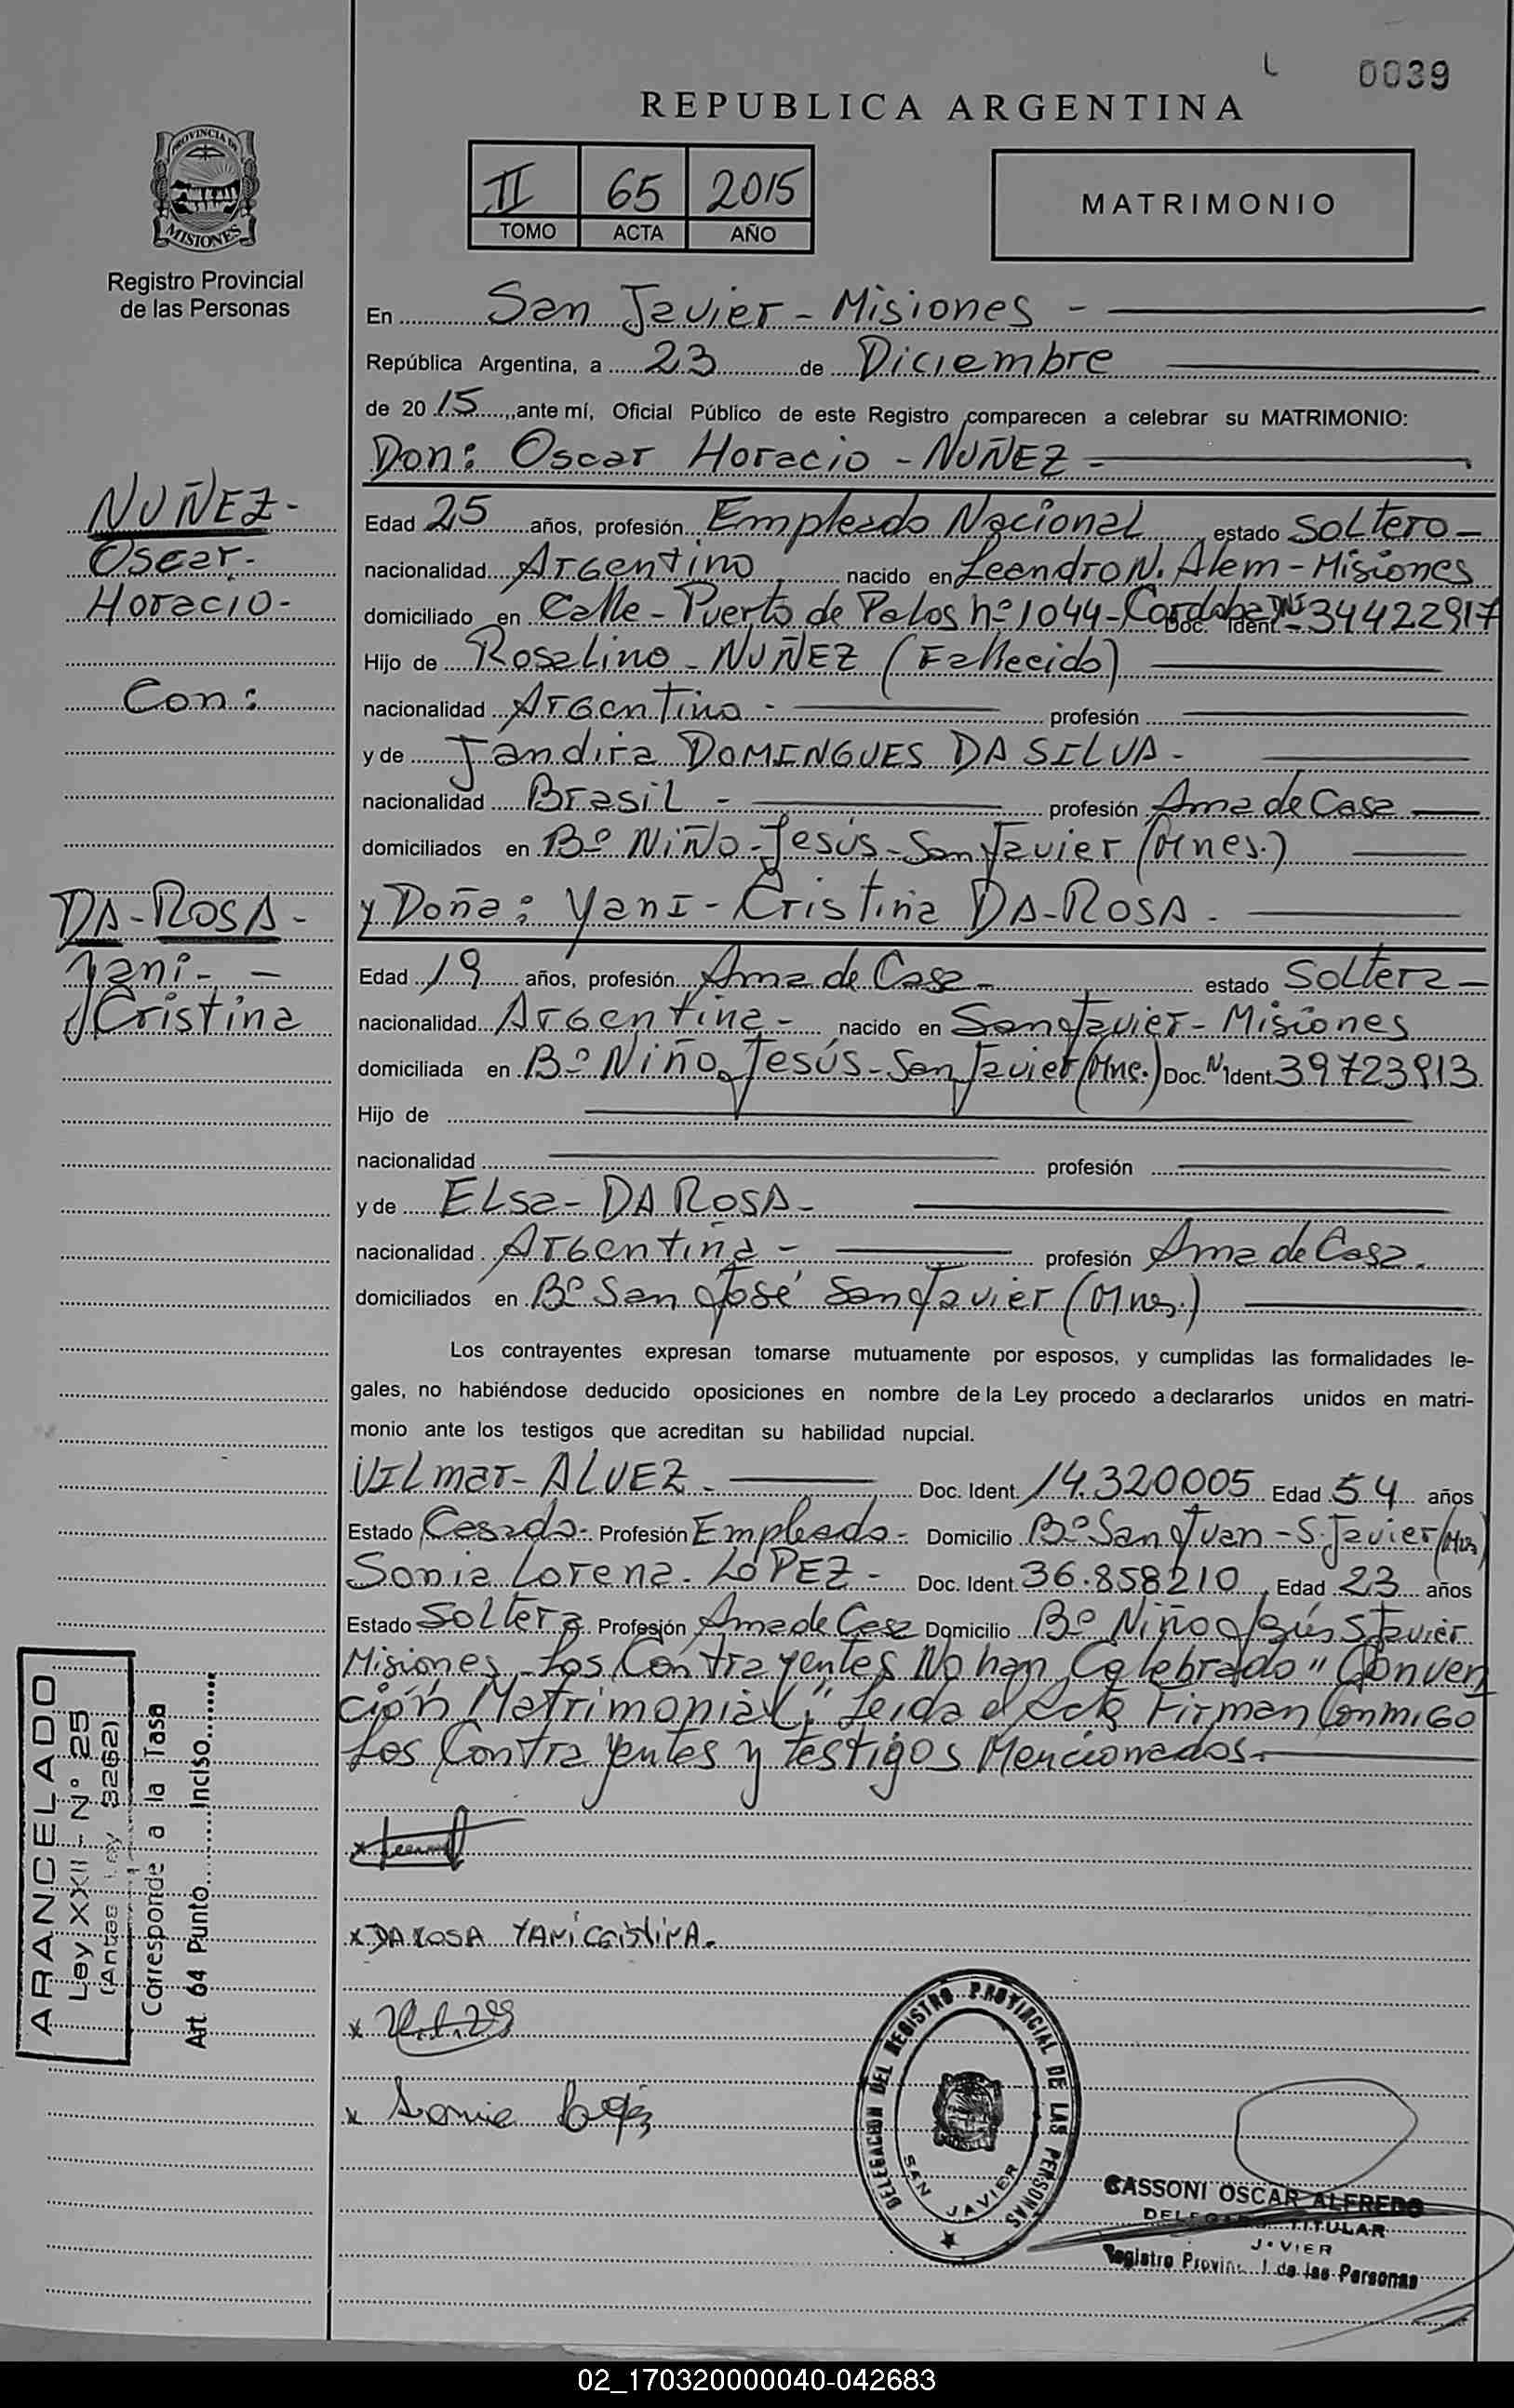 0039
REPUBLICA ARGENTINA
II 65 2015
TOMO ACTA AÑO
MATRIMONIO
PROVINCIA DE
MISIONES
Registro Provincial
de las Personas
En San Javier - Misiones -
República Argentina, a 23 de Diciembre
de 2015, ante mí, Oficial Público de este Registro comparecen a celebrar su MATRIMONIO:
Don: Oscar Horacio - NUÑEZ -
NUÑEZ -
Oscar -
Horacio -
Con:
DA - ROSA -
Yani - -
Cristina
Edad 25 años, profesión Empleado Nacional estado Soltero -
nacionalidad Argentino nacido en Leandro N. Alem - Misiones
domiciliado en Calle - Puerto de Palos nº 1044 - Cordoba Doc. Ident. DNI - 34422917
Hijo de Rosalino - NUÑEZ (Fallecido)
nacionalidad Argentino - profesión
y de Jandira DOMINGUES DA SILVA -
nacionalidad Brasil - profesión Ama de Casa
domiciliados en Bº Niño - Jesús - San Javier (Mnes.)
y Doña: Yani - Cristina DA - ROSA -
Edad 19 años, profesión Ama de Casa - estado Soltera -
nacionalidad Argentina - nacido en San Javier - Misiones
domiciliada en Bº Niño Jesús - San Javier (Mne.) Doc. Ident. Nº 39723913
Hijo de
nacionalidad profesión
y de Elsa - DA ROSA -
nacionalidad Argentina - profesión Ama de Casa.
domiciliados en Bº San José San Javier (Mnes.)
Los contrayentes expresan tomarse mutuamente por esposos, y cumplidas las formalidades le-
gales, no habiéndose deducido oposiciones en nombre de la Ley procedo a declararlos unidos en matri-
monio ante los testigos que acreditan su habilidad nupcial.
Vilmar - ALVEZ - Doc. Ident. 14.320005 Edad 54 años
Estado Casado - Profesión Empleado - Domicilio Bº San Juan - S. Javier (Mns)
Sonia Lorena - LOPEZ - Doc. Ident. 36.858210 Edad 23 años
Estado Soltera Profesión Ama de Casa Domicilio Bº Niño Jesús S Javier
Misiones - Los Contrayentes No han Celebrado "Conven
ción Matrimonial". Leida el Acta Firman Conmigo
Los Contrayentes y testigos Mencionados -
ARANCELADO
Ley XXII - Nº 25
(Antes Ley 3262)
Corresponde a la Tasa
Art. 64 Punto........Inciso........
x
x DA ROSA YANI CRISTINA.
x
x Sonia
DELEGACION DEL REGISTRO PROVINCIAL DE LAS PERSONAS
SAN JAVIER
CASSONI OSCAR ALFREDO
DELEGADO TITULAR
Registro Provincial de las Personas
02_170320000040-042683